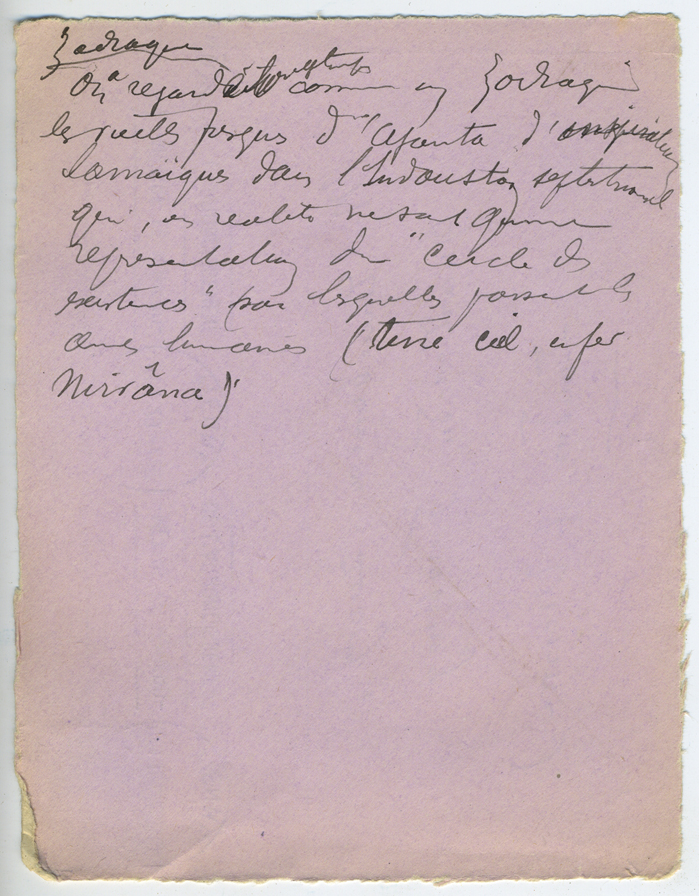 Zodiaque
On a regardé longtemps comme un Zodiaque
les vieilles fresques d'Ajanta d'inspiration
Lamaïques dans l'Indoustan septentrional
qui, en realité ne sont qu'une
representation du "cercle des
existences" par lesquelles passent les
ames humaines (terre ciel, enfer
Nirvâna)